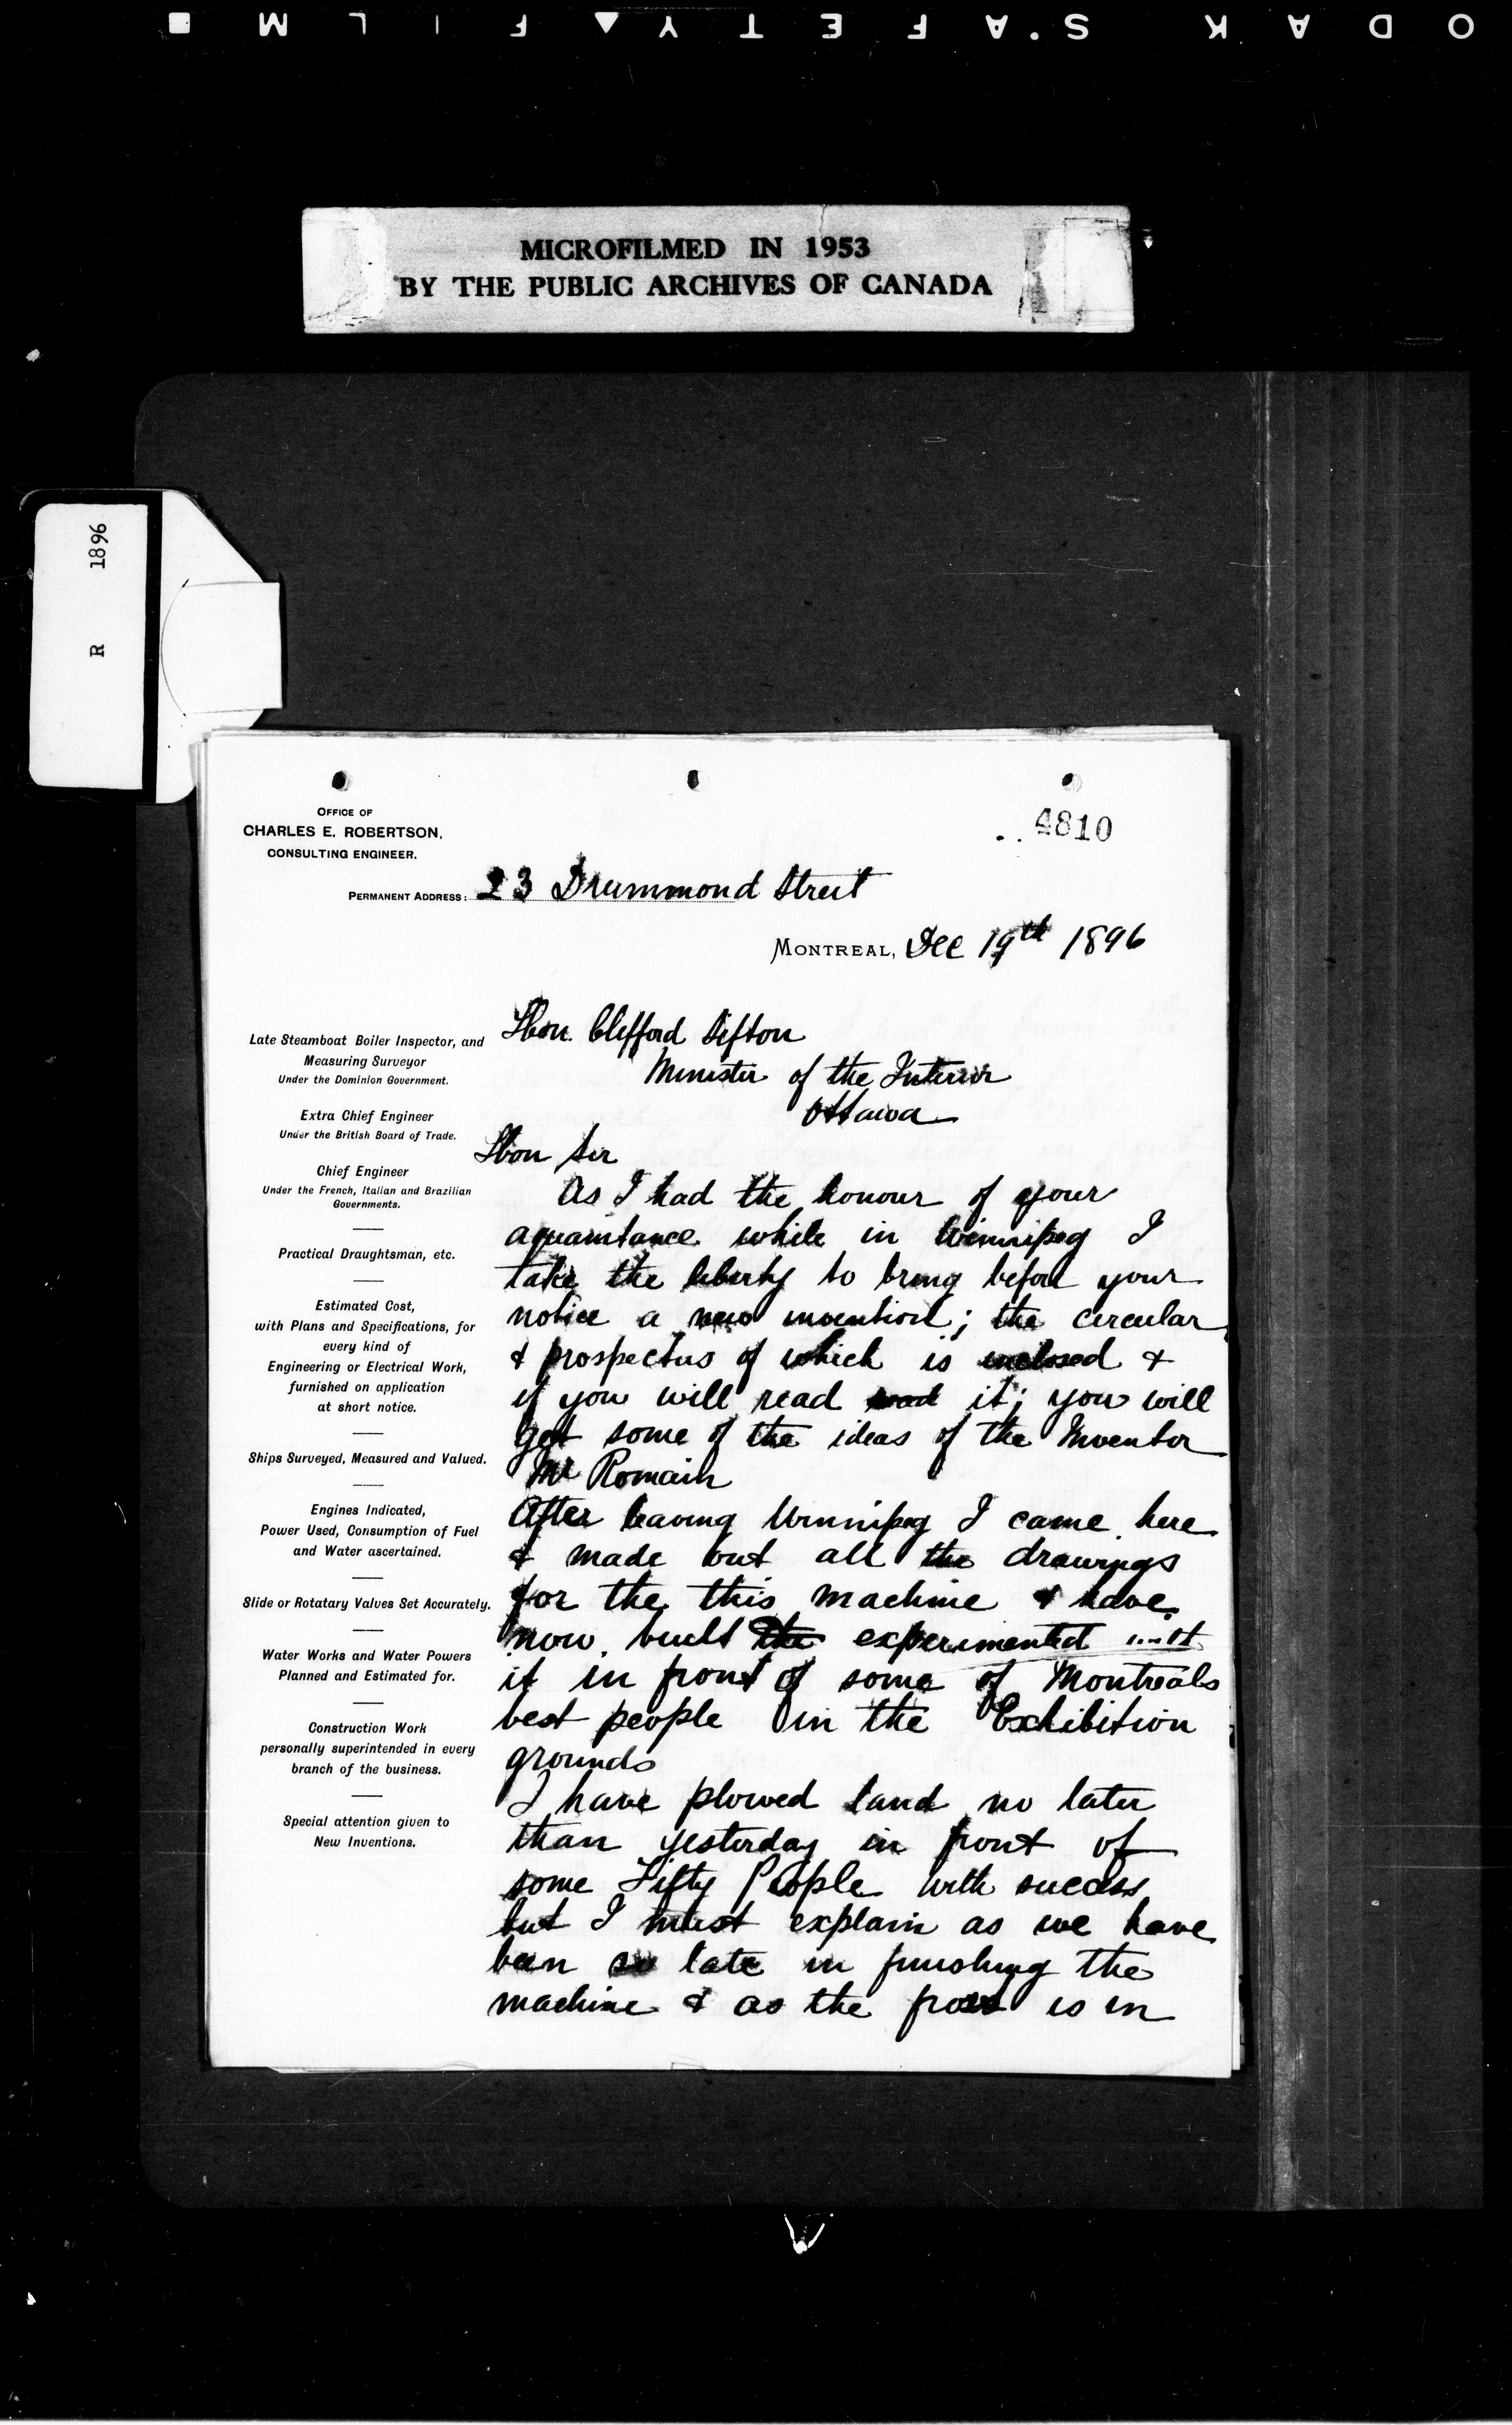 ODAK S.AFETY FILM
MICROFILMED IN 1953
BY THE PUBLIC ARCHIVES OF CANADA
R 1896
OFFICE OF
CHARLES E. ROBERTSON,
CONSULTING ENGINEER.
4810
PERMANENT ADDRESS: 23 Drummond Street
MONTREAL, Dec 19th 1896
Late Steamboat Boiler Inspector, and
Measuring Surveyor
Under the Dominion Government.
Extra Chief Engineer
Under the British Board of Trade.
Chief Engineer
Under the French, Italian and Brazilian
Governments.
Practical Draughtsman, etc.
Estimated Cost,
with Plans and Specifications, for
every kind of
Engineering or Electrical Work,
furnished on application
at short notice.
Ships Surveyed, Measured and Valued.
Engines Indicated,
Power Used, Consumption of Fuel
and Water ascertained.
Slide or Rotatary Valves Set Accurately.
Water Works and Water Powers
Planned and Estimated for.
Construction Work
personally superintended in every
branch of the business.
Special attention given to
New Inventions.
Hon. Clifford Sifton
Minister of the Interior
Ottawa
Hon Sir
As I had the honour of your
aquaintance while in Winnipeg I
take the liberty to bring before your
notice a new invention; the circular
& prospectus of which is inclosed &
if you will read read it; you will
get some of the ideas of the Inventor
Mr Romain
After leaving Winnipeg I came here
& made out all the drawings
for the this machine & have
now built the experimented
it in front of some of Montreals
best people in the Exhibition
grounds
I have plowed land no later
than yesterday in front of
some Fifty People with success
but I must explain as we have
been so late in finishing the
machine & as the frost is in